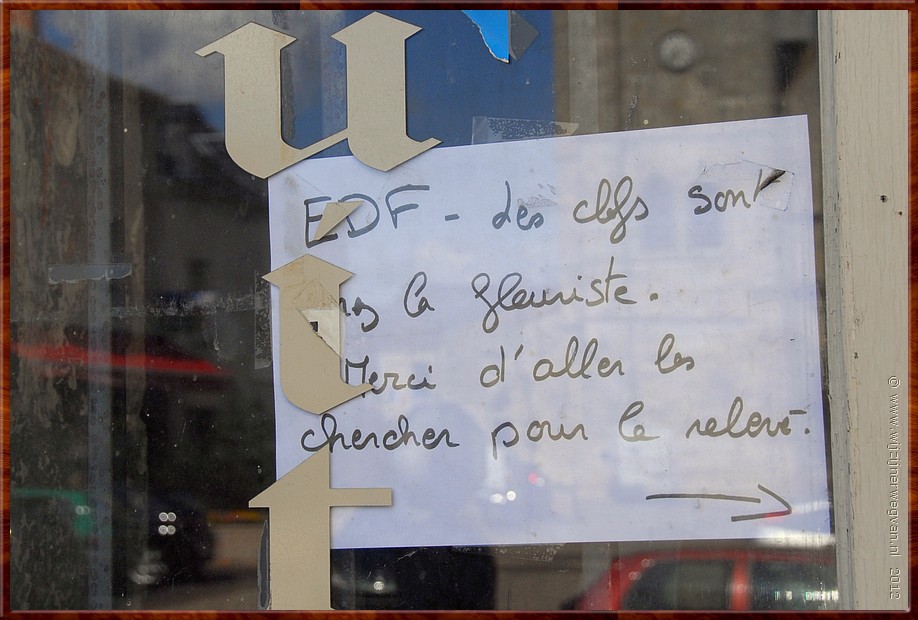 u
i
t
EDF - Les clefs sont
chez la fleuriste.
Merci d'aller les
chercher pour le relevé.
© www.wijzijnerwegvan.nl 2012